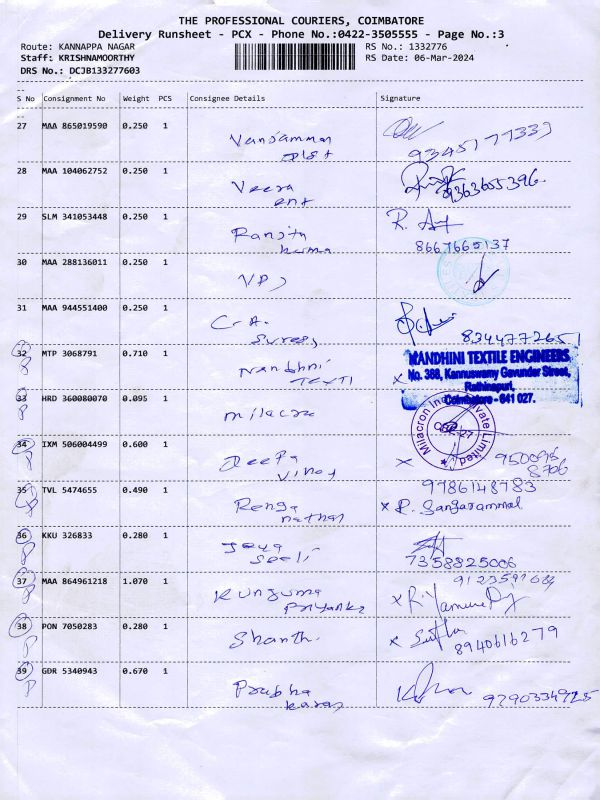 THE PROFESSIONAL COURIERS, COIMBATORE
Delivery Runsheet - PCX - Phone No.:0422-3505555 - Page No.:3
Route: KANNAPPA NAGAR RS No.: 1332776
Staff: KRISHNAMOORTHY RS Date: 06-Mar-2024
DRS No.: DCJB133277603
S No Consignment No Weight PCS Consignee Details Signature
27 MAA 865019590 0.250 1
28 MAA 104062752 0.250 1 Veera
9363655396
ent
29 SLM 341053448 0.250 1 Ranjith
8667665137
30 MAA 288136011 0.250 1
31 MAA 944551400 0.250 1
Suresh
8344772651
32 MTP 3068791 0.710 1 Nandhni
NANDHINI TEXTILE ENGINEERS
No. 388, Kannuswamy Gavunder Street,
Rathinapuri,
Coimbatore - 641 027.
33 HRD 360080070 0.095 1 milacra
Milacron India Private Limited
34 IXM 506004499 0.600 1 Deepa
Vinoth
950095
8706
35 TVL 5474655 0.490 1 Renga
nathan
9786148783
R. Sangarammal
36 KKU 326833 0.280 1 Jaya
7358825006
37 MAA 864961218 1.070 1 Kunguma
Priyanka
38 PON 7050283 0.280 1 Shanthi
8940616279
39 GDR 5340943 0.670 1 Prabha
karan
9290334925